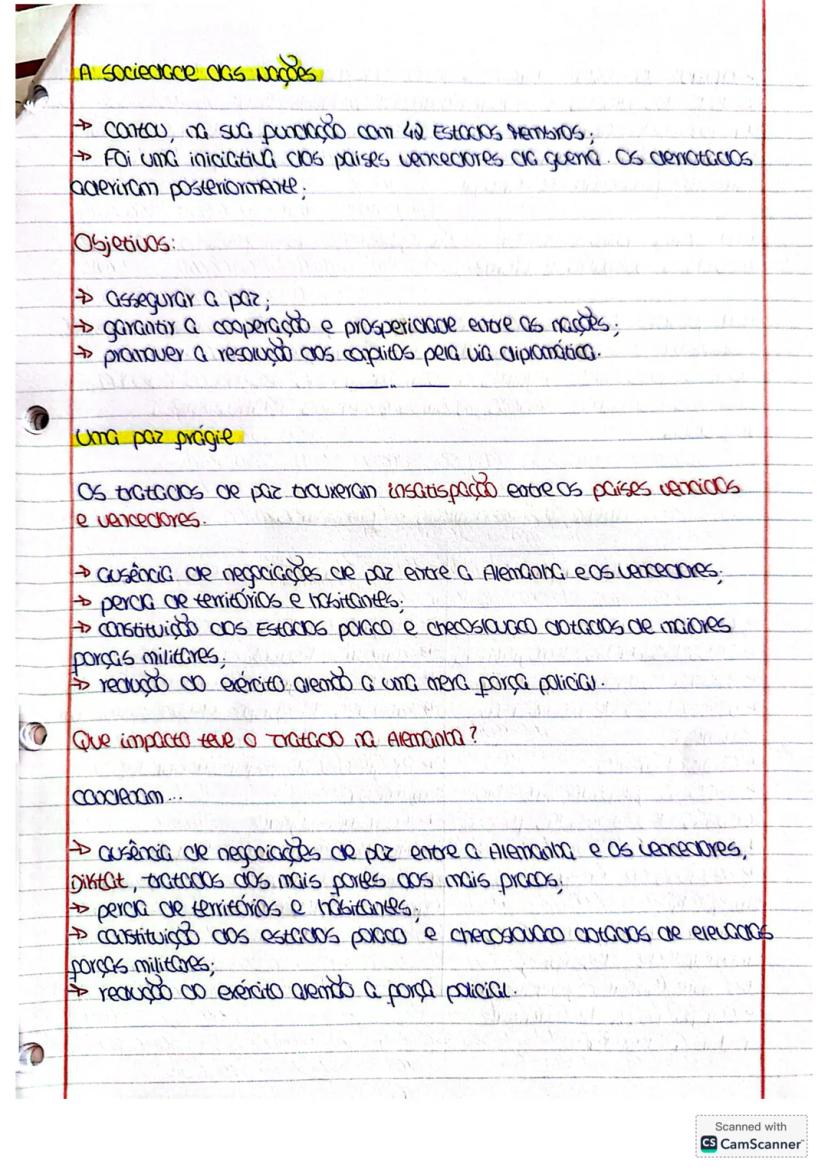 A sociedade das Nações
→ contou, na sua fundação com 42 Estados Membros;
→ Foi uma iniciativa dos países vencedores da guerra. Os derrotados
aderiram posteriormente;
Objetivos:
→ assegurar a paz;
→ garantir a cooperação e prosperidade entre as nações;
→ promover a resolução dos conflitos pela via diplomática.
Uma paz frágil
Os tratados de paz trouxeram insatisfação entre os países vencidos
e vencedores.
→ ausência de negociações de paz entre a Alemanha e os vencedores;
→ perda de territórios e habitantes;
→ constituição dos Estados polaco e checoslovaco dotados de maiores
forças militares;
→ redução do exército alemão a uma mera força policial.
Que impacto teve o Tratado na Alemanha?
→ ausência de negociações de paz entre a Alemanha e os vencedores,
Diktat, tratados dos mais fortes aos mais fracos;
→ perda de territórios e habitantes;
→ constituição dos estados polaco e checoslovaco dotados de elevadas
forças militares;
→ redução do exército alemão a força policial.
Scanned with
CS CamScanner